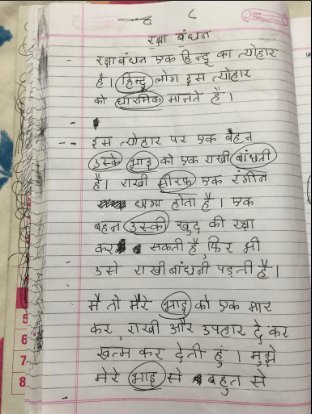 रक्षा बंधन
रक्षाबंधन एक हिन्दू का त्योहार
है। हिन्दू लोग इस त्योहार
को धारमिक मानते हैं।
इस त्योहार पर एक बहन
उसके भाइ को एक राखी बांधती
है। राखी सीरफ़ एक रंगीन
धागा होता है। एक
बहन उसकी खुद की रक्षा
कर सकती है, फिर भी
उसे राखी बांधनी पड़ती है।
मैं तो मेरे भाइ को एक मार
कर, राखी और उपहार दे कर
खत्म कर देती हूं। मुझे
मेरे भाइ से बहुत से
5
6
7
8